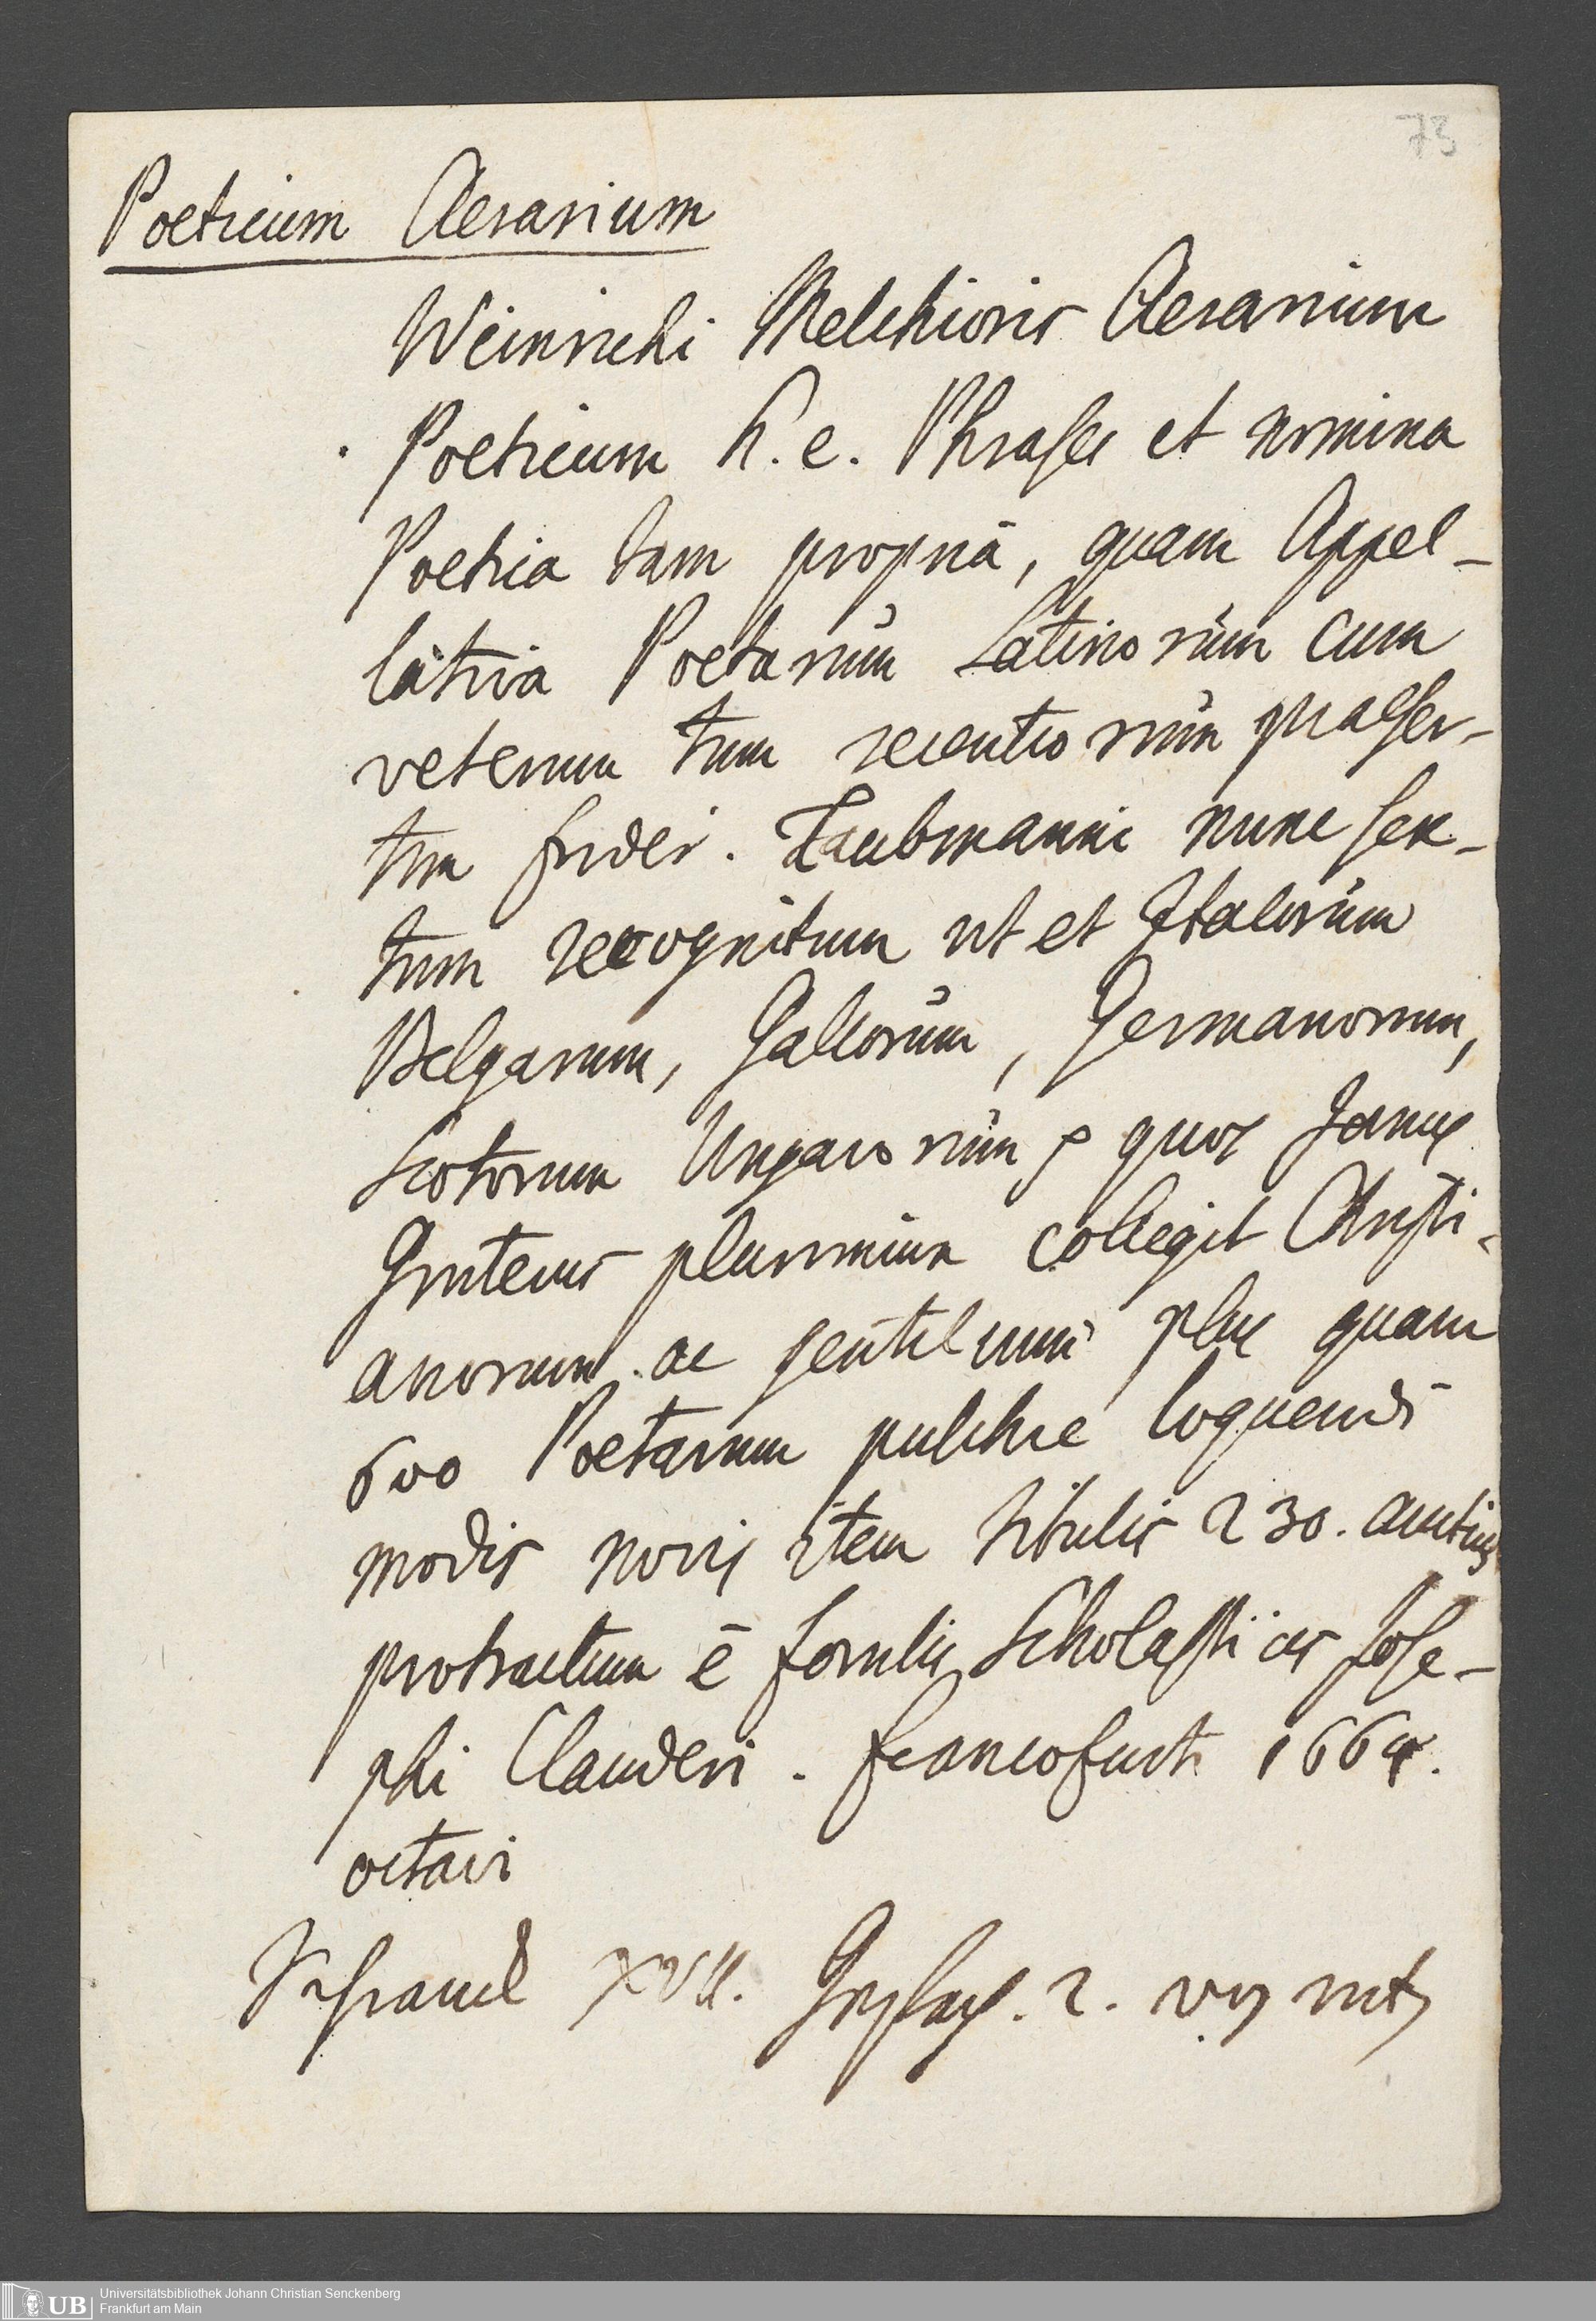 73
Poeticum Aerarium
Weinrichi Melchioris Aerarium
Poeticum h. e. Phrases et nomina
Poetica tam propria, quam Appel-
lativa Poetarum Latinorum cum
veterum tum recentiorum praeser-
tim frider. Taubmanni nunc sex-
tum recognitum ut et Italorum
Belgarum, Gallorum, Germanorum,
Scotorum Ungarorum quos Janus
Gruterus plurimum collegit Christi-
anorum ac gentilium plus quam
600 Poetarum pulchre loquendi
modis novis item titulis 230. auctius
protractum è forulis Scholasticis Jose-
phi Clauderi. francofurti 1664.
octavi
XVII. 2.
Universitätsbibliothek Johann Christian Senckenberg
UB Frankfurt am Main